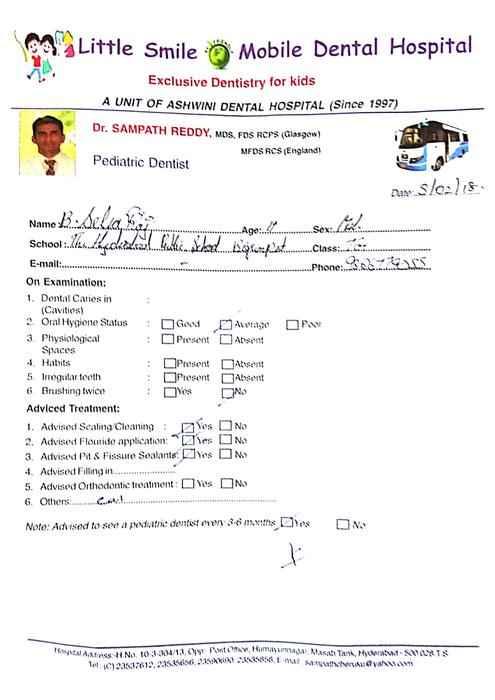 Little Smile Mobile Dental Hospital
Exclusive Dentistry for kids
A UNIT OF ASHWINI DENTAL HOSPITAL (Since 1997)
Dr. SAMPATH REDDY, MDS, FDS RCPS (Glasgow)
MFDS RCS (England)
Pediatric Dentist
Date: 5/02/18
Name B. Age: Sex:
School: The Hyderabad Public School Begumpet Class:
E-mail: - Phone:
On Examination:
1. Dental Caries in :
(Cavities)
2. Oral Hygiene Status : Good Average Poor
3. Physiological : Present Absent
Spaces
4. Habits : Present Absent
5. Irregular teeth : Present Absent
6. Brushing twice : Yes No
Adviced Treatment:
1. Advised Scaling/Cleaning : Yes No
2. Advised Flouride application: Yes No
3. Advised Pit & Fissure Sealants: Yes No
4. Advised Filling in
5. Advised Orthodontic treatment : Yes No
6. Others
Note: Advised to see a pediatric dentist every 3-6 months Yes No
Hospital Address:-H.No. 10-3-304/13, Opp: Post Office, Humayunnagar, Masab Tank, Hyderabad - 500 028 T.S.
Tel: (C) 23537612, 23535656, 23590690, 23535858, E-mail: sampathcheruku@yahoo.com